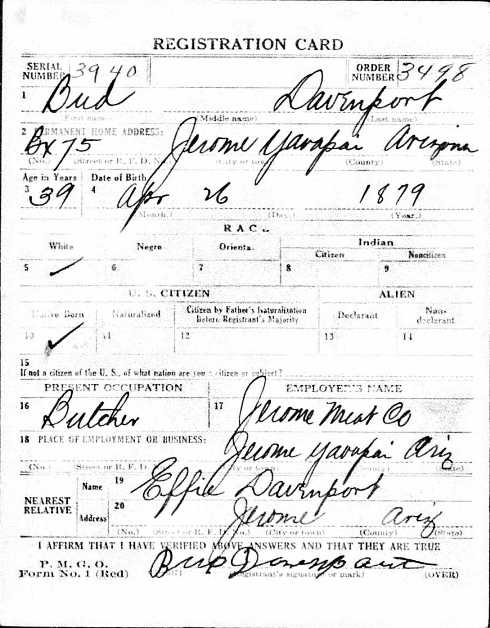 REGISTRATION CARD
SERIAL NUMBER 3940 ORDER NUMBER 3498
1 Bud Davenport
(First name) (Middle name) (Last name)
2 PERMANENT HOME ADDRESS:
Bx 75 Jerome Yavapai Arizona
(No.) (Street or R. F. D. No.) (City or town) (County) (State)
Age in Years Date of Birth
3 39 4 Apr 26 1879
(Month.) (Day.) (Year.)
RACE
White Negro Oriental Indian
Citizen Noncitizen
5 ✓ 6 7 8 9
U. S. CITIZEN ALIEN
Native Born Naturalized Citizen by Father's Naturalization Before Registrant's Majority Declarant Non-declarant
10 ✓ 11 12 13 14
15
If not a citizen of the U. S., of what nation are you a citizen or subject?
PRESENT OCCUPATION EMPLOYER'S NAME
16 Butcher 17 Jerome Meat Co
18 PLACE OF EMPLOYMENT OR BUSINESS:
Jerome Yavapai Ariz
(No.) (Street or R. F. D. No.) (City or town) (County) (State)
NEAREST RELATIVE Name 19 Effie Davenport
Address 20 Jerome Ariz
(No.) (Street or R. F. D. No.) (City or town) (County) (State)
I AFFIRM THAT I HAVE VERIFIED ABOVE ANSWERS AND THAT THEY ARE TRUE
P. M. G. O.
Form No. 1 (Red) Bud Davenport
(Registrant's signature or mark) (OVER)